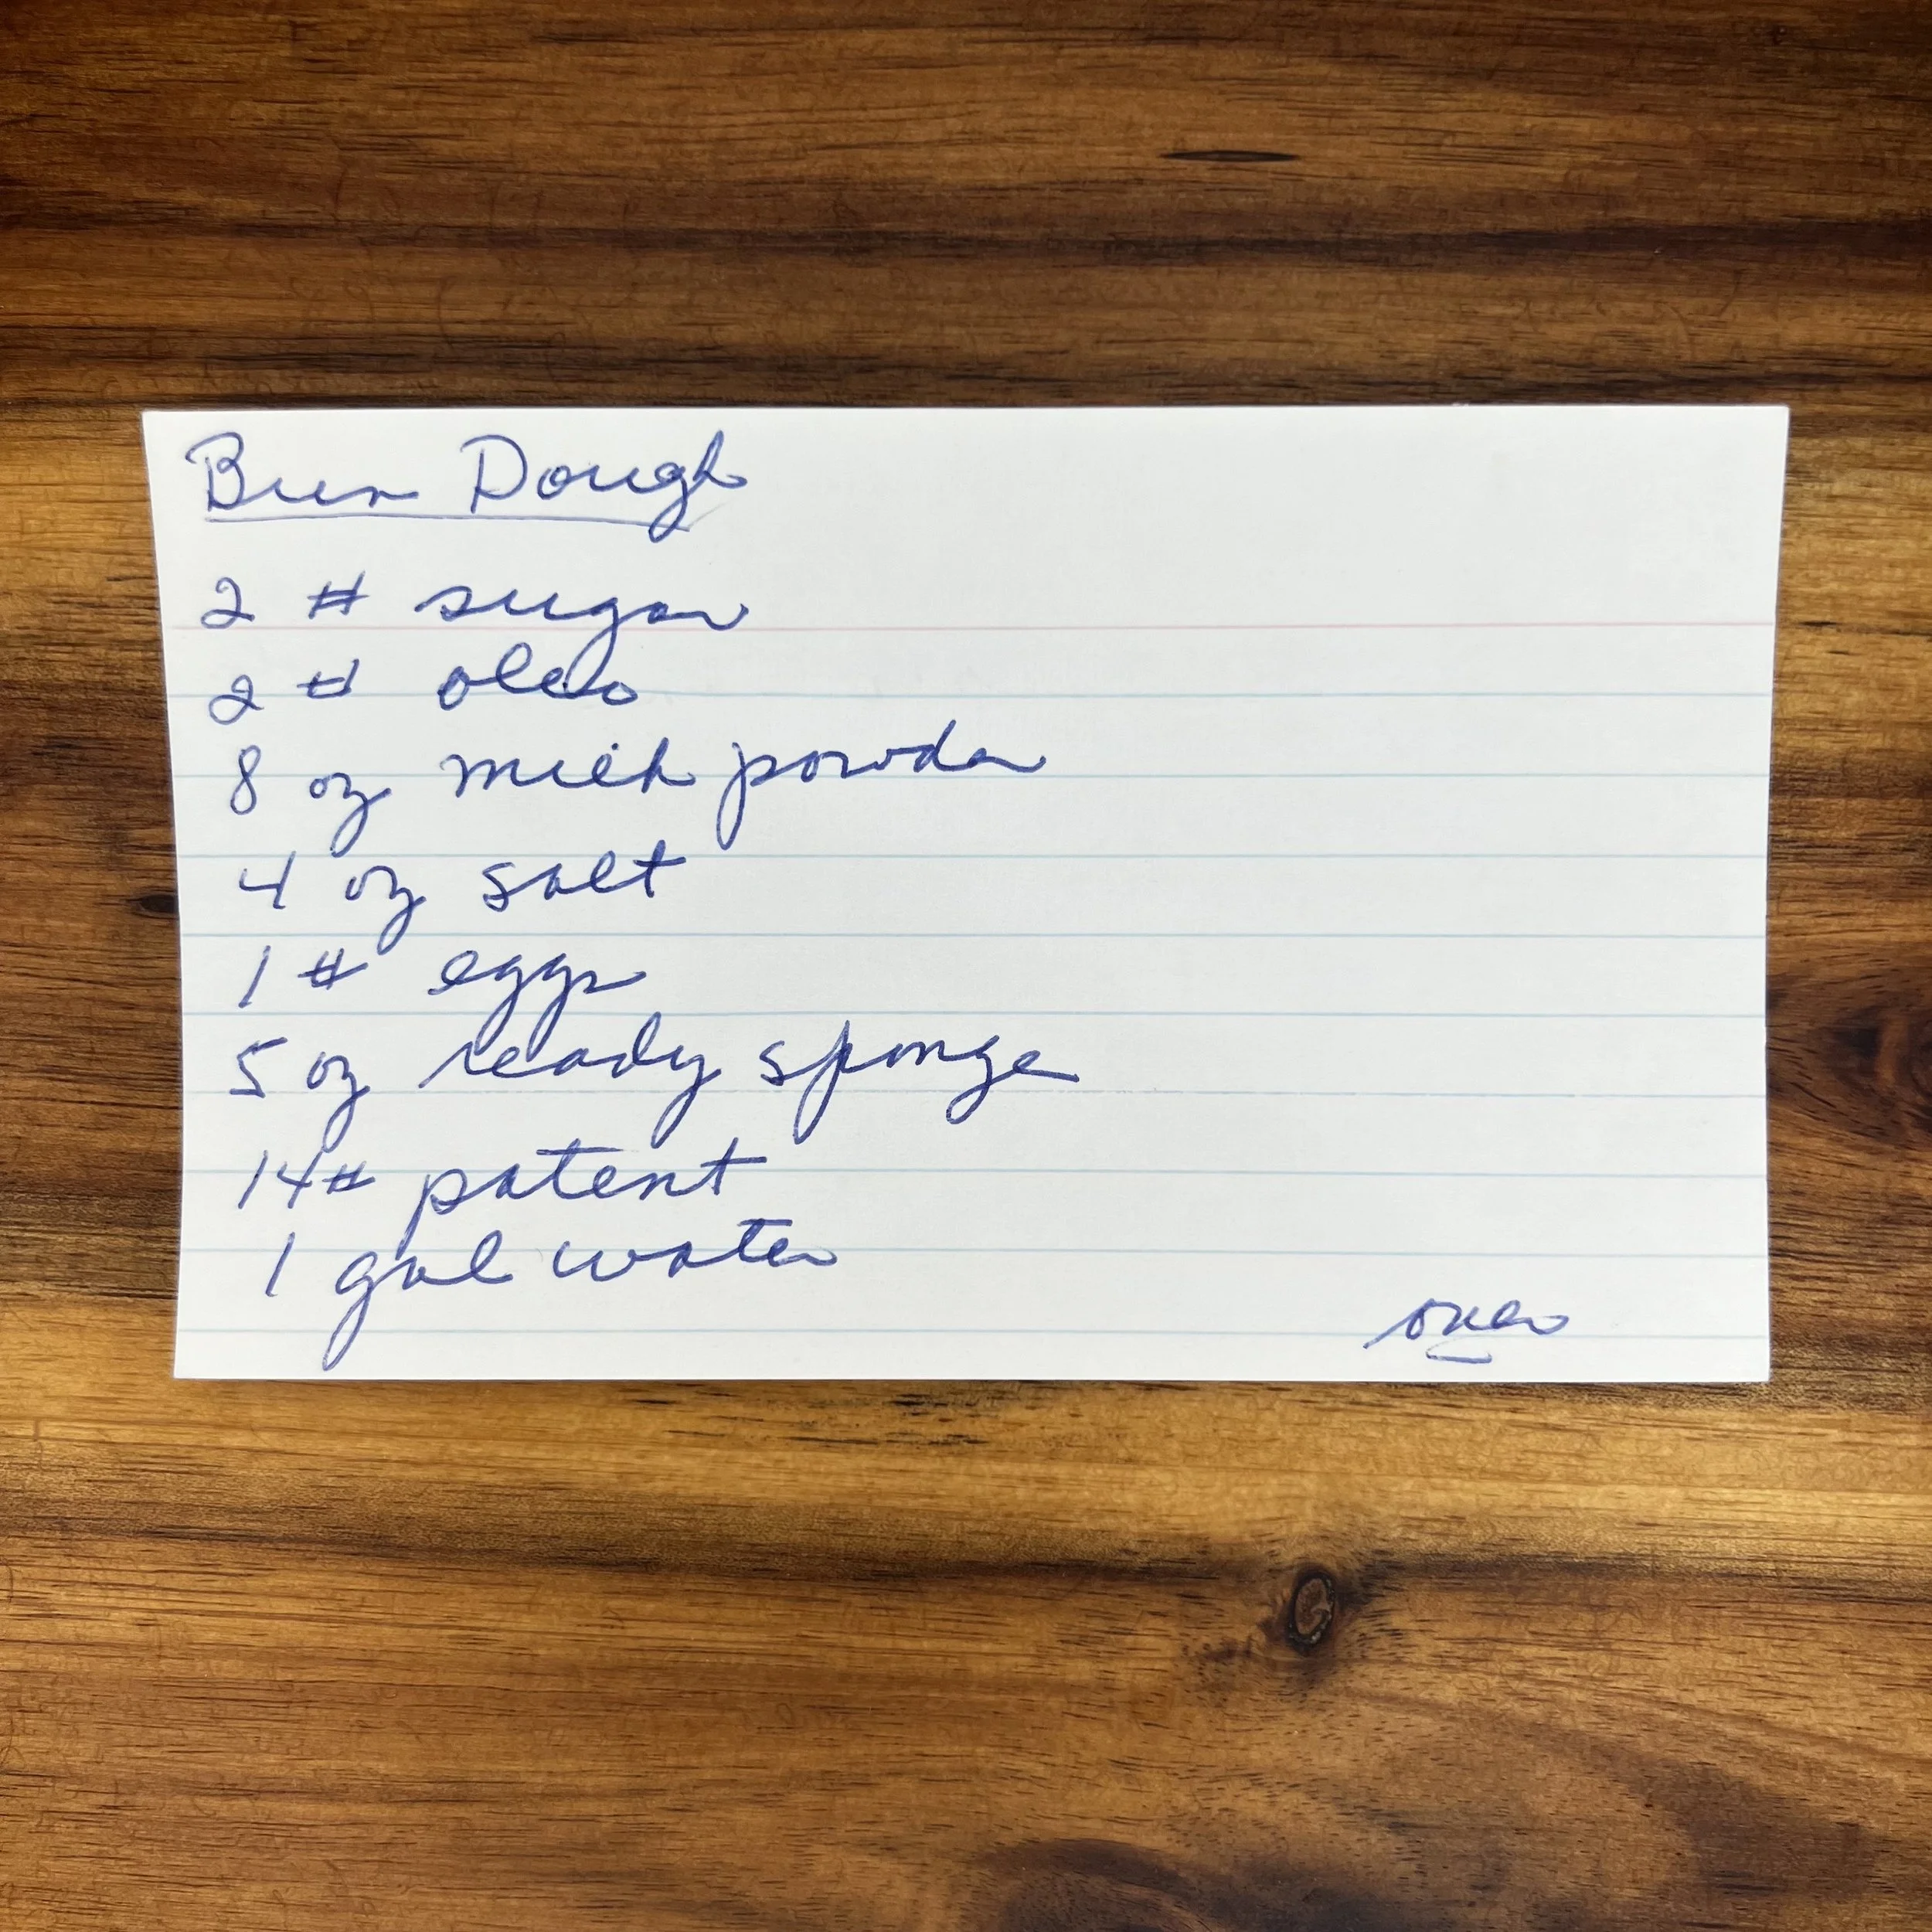 Bun Dough
2 # sugar
2 # oleo
8 oz milk powder
4 oz salt
1 # eggs
5 oz ready sponge
14# patent
1 gal water
over